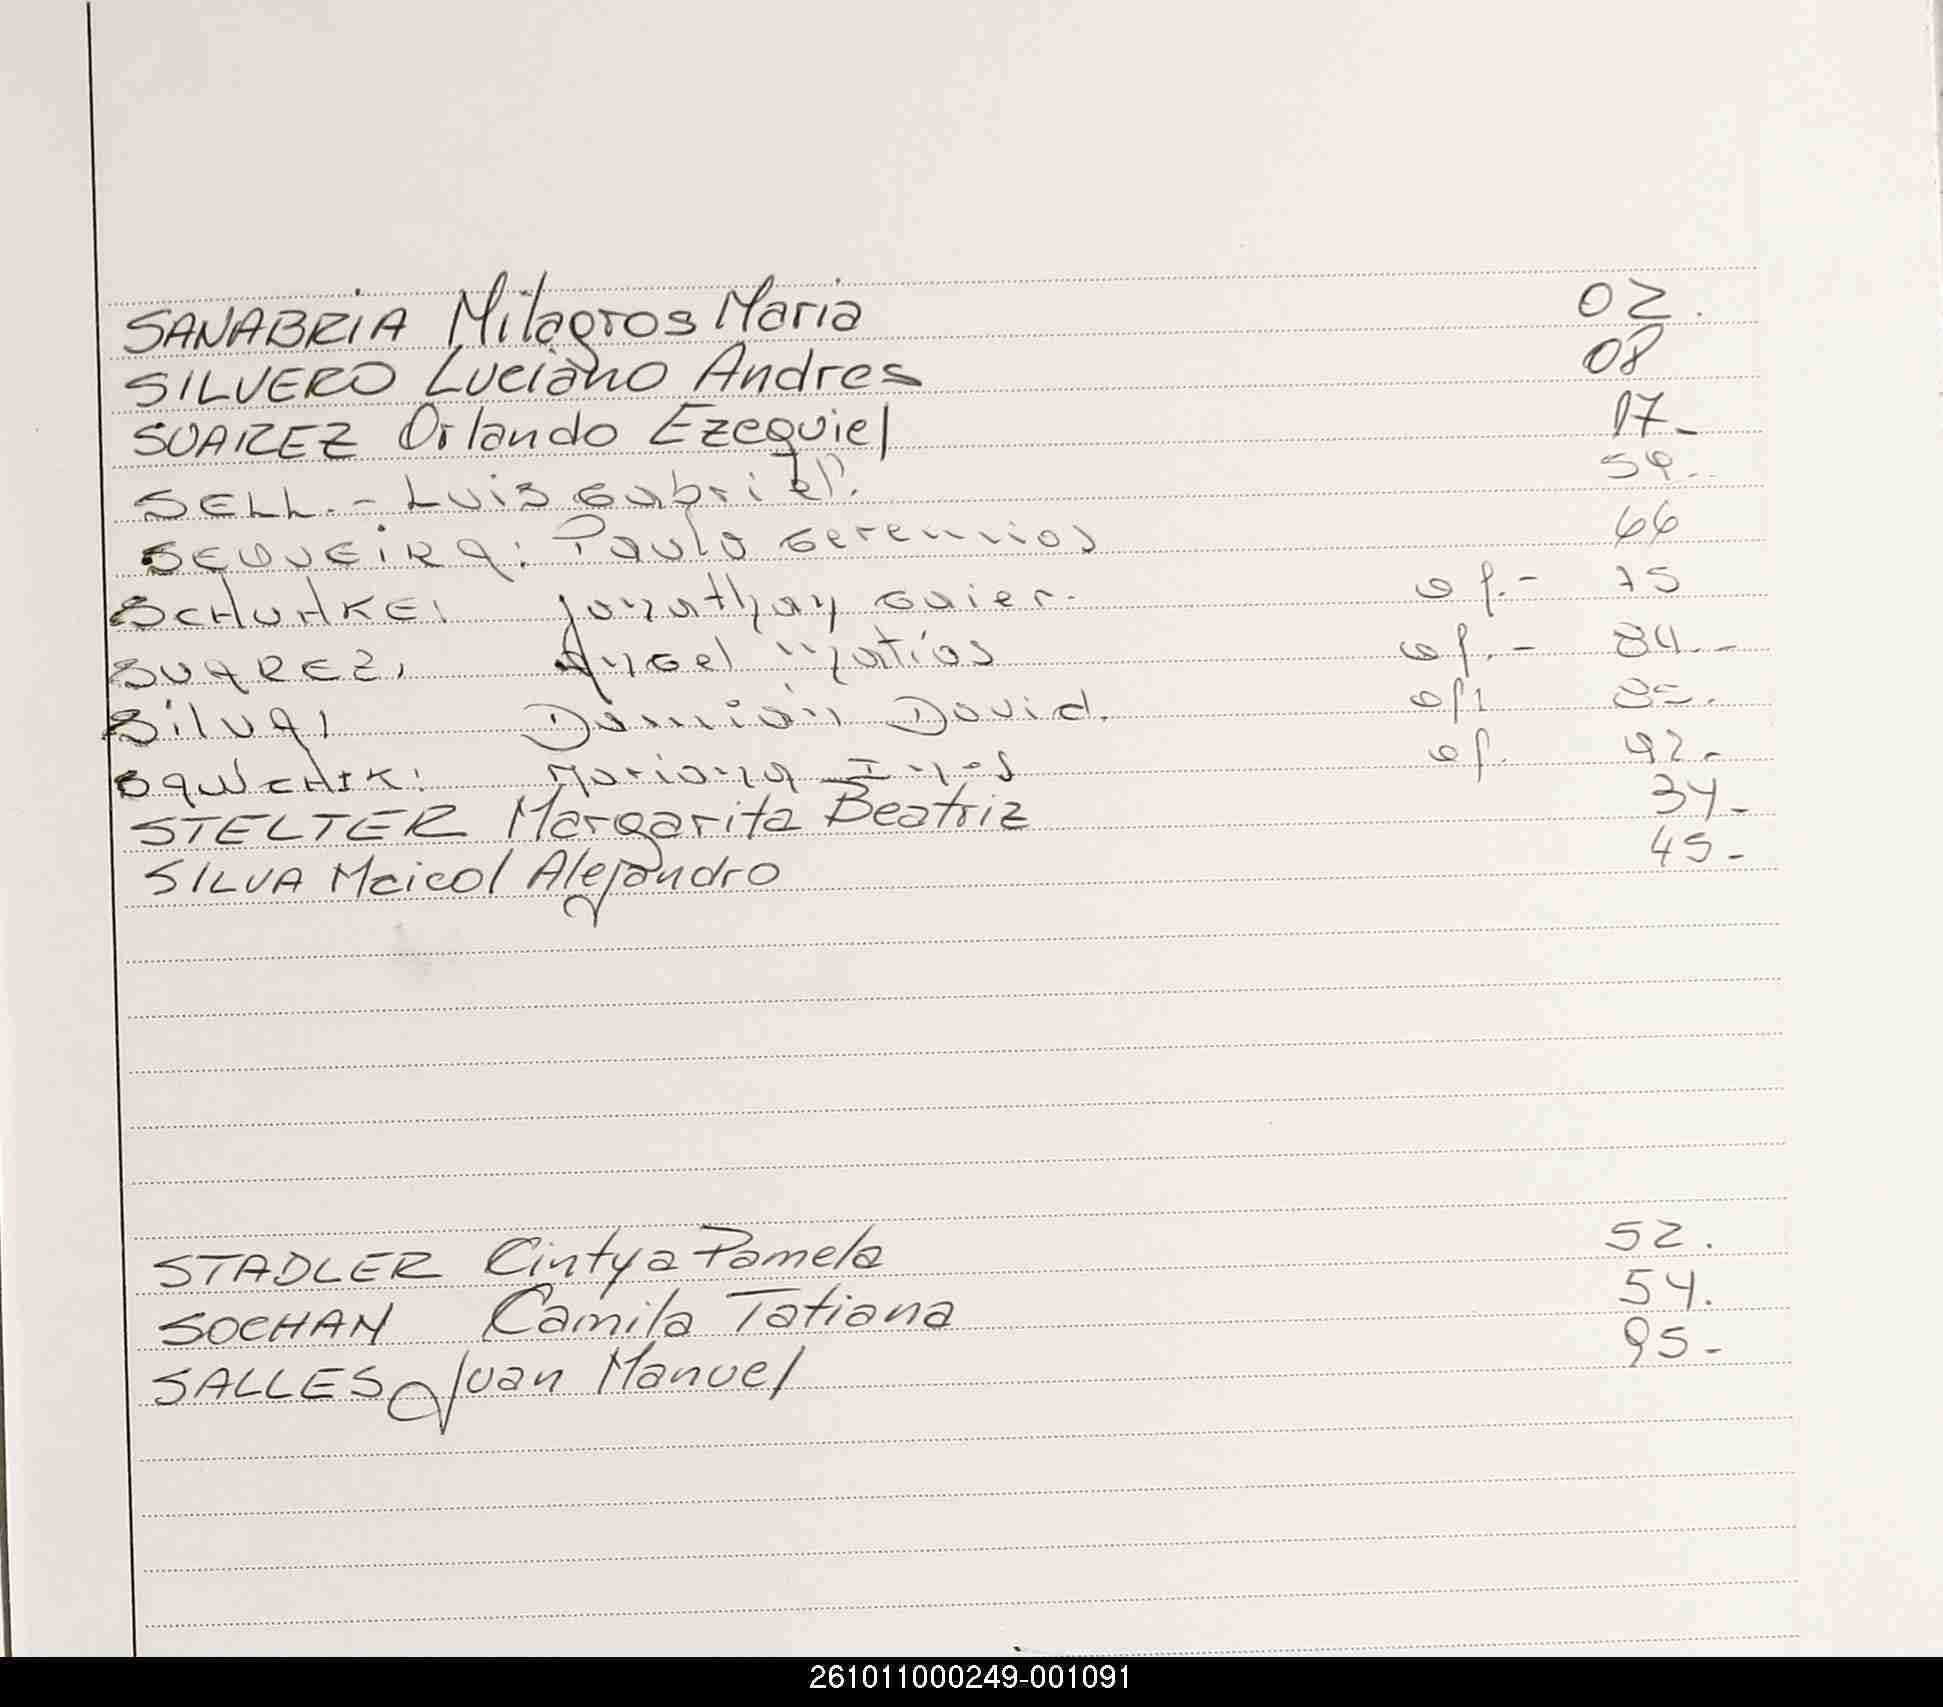 SANABRIA Milagros Maria 02.
SILVERO Luciano Andres 08
SUAREZ Orlando Ezequiel 17-
SELL.- Luis Gabriel. 59..
SEQUEIRA: Paulo Geremias 66
SCHUHKE: Jonathan Gaier. of.- 75
SUAREZ, Angel Matías of.- 84.-
SilvA, Damián David. of. 85.
SAWCHIK: Mariana Ines of. 92.-
STELTER Margarita Beatriz 34-
SILVA Maicol Alejandro 45-
STADLER Cintya Pamela 52.
SOCHAN Camila Tatiana 54.
SALLES Juan Manuel 95-
261011000249-001091